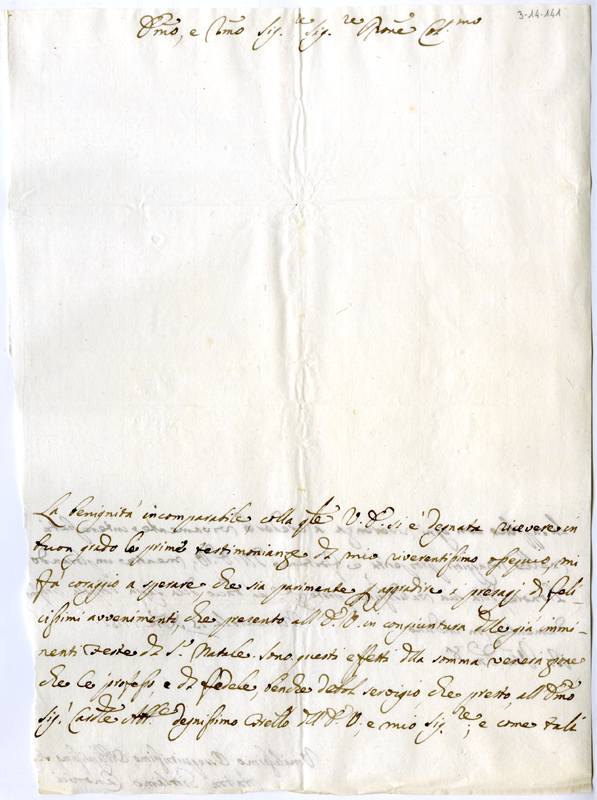 3-14-141
Em̃o, e Rm̃o Sig.re Sig.re Prõne Col.mo
La benignità incomparabile colla q̃le V. E. si è degnata ricevere in
buon grado le prime testimonianze di mio riverentissimo ossequio, mi
fà coraggio a sperare, che sia parimente p aggradire i presagj di feli-
cissimi avvenimenti, che presento all'E. V. in congiuntura delle già immi-
nenti Feste di S. Natale. Sono questi effetti della somma venerazione
che Le professo e di fedele, benche debol servigio, che presto, all'Em̃o
Sig. Cardle degnissimo Frello dell'E. V., e mio Sig.re, e come tali